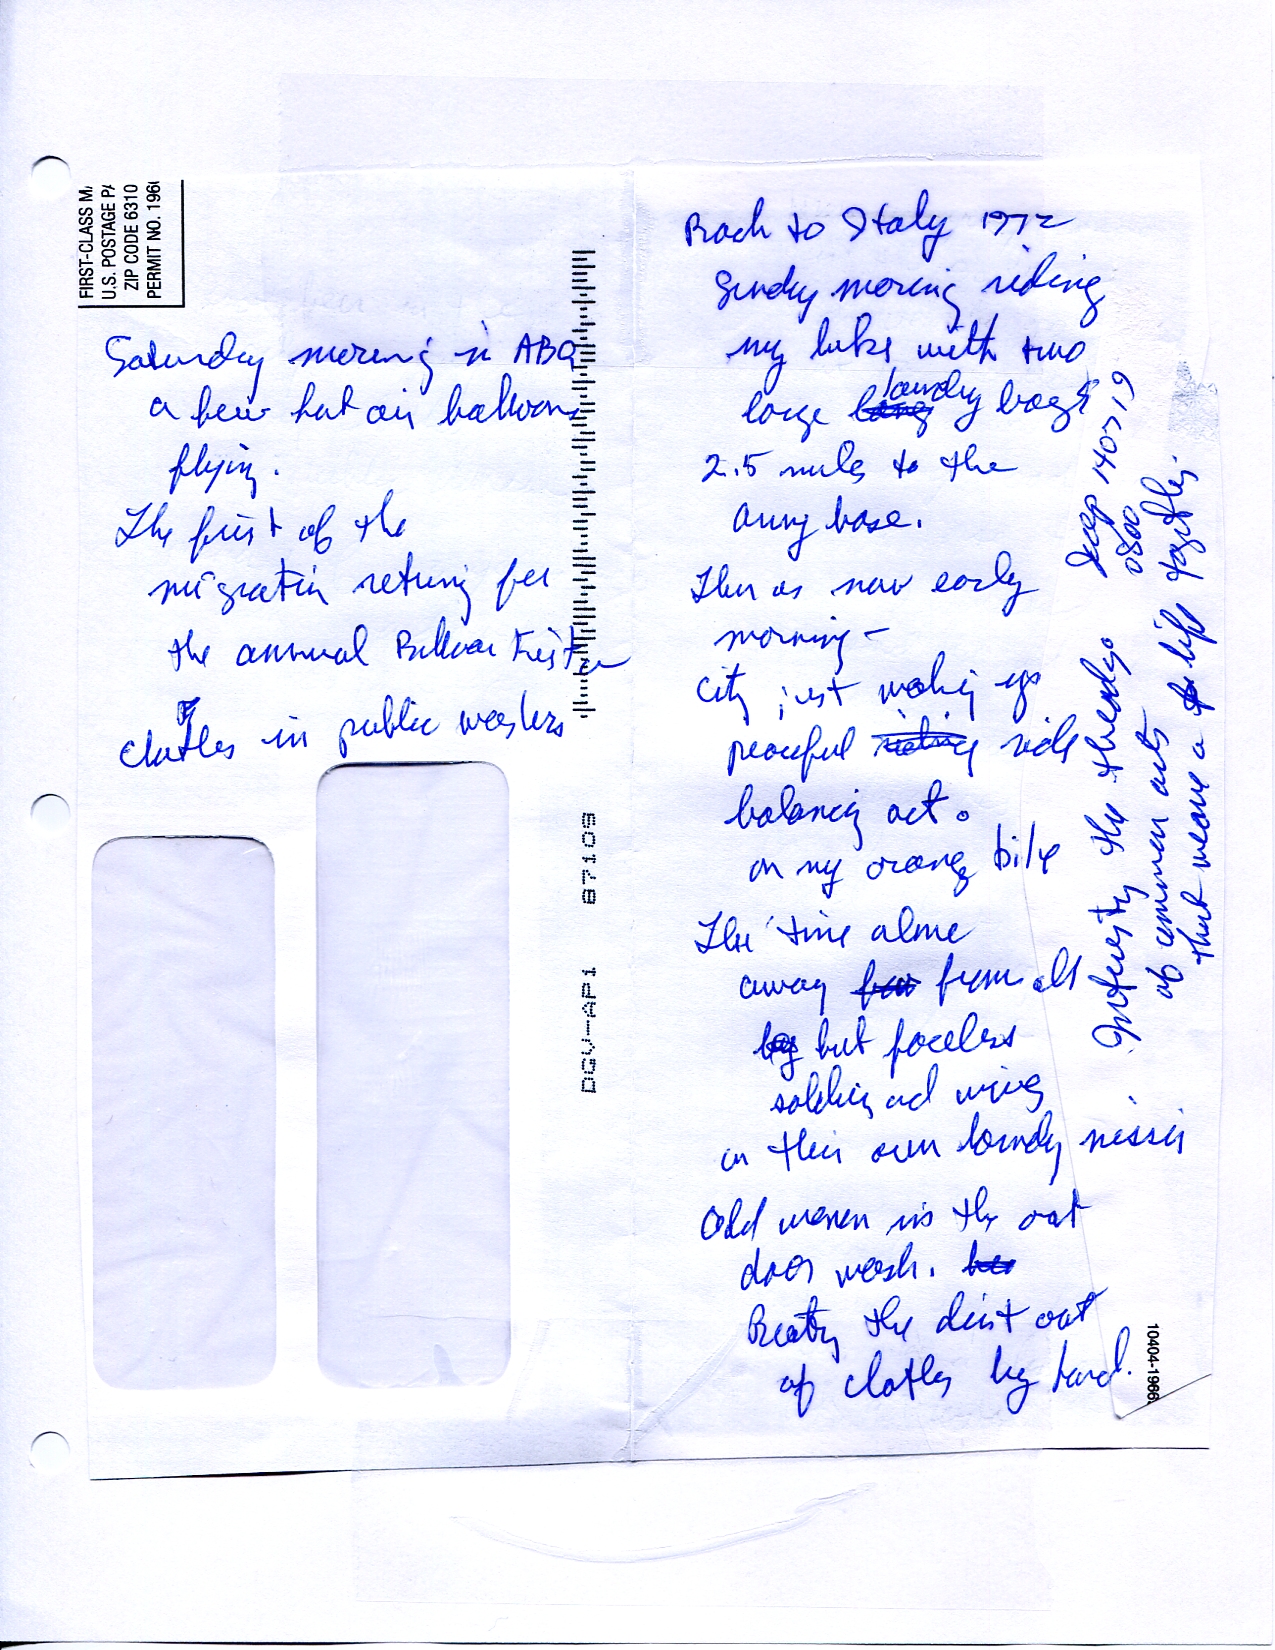 FIRST-CLASS M
U.S. POSTAGE PA
ZIP CODE 6310
PERMIT NO. 196
Saturday morning in ABQ
a few hot air balloons
flying.
The first of the
migration returning for
the annual Balloon Fiesta
clothes in public washers
DGV-AP1 87109
Back to Italy 1972
Sunday morning riding
my bike with two
large laundry bags
2.5 miles to the
Army base.
Then as now early
morning -
City just waking up
peaceful ride
balancing act.
on my orange bike
The time alone
away from all
but faceless
soldiers and wives
in their own laundry
Old women in the out
door wash.
Beating the dirt out
of clothes by hand.
10404-1966
Interesting the threads
of common acts
that weave a life together.
140719
0800